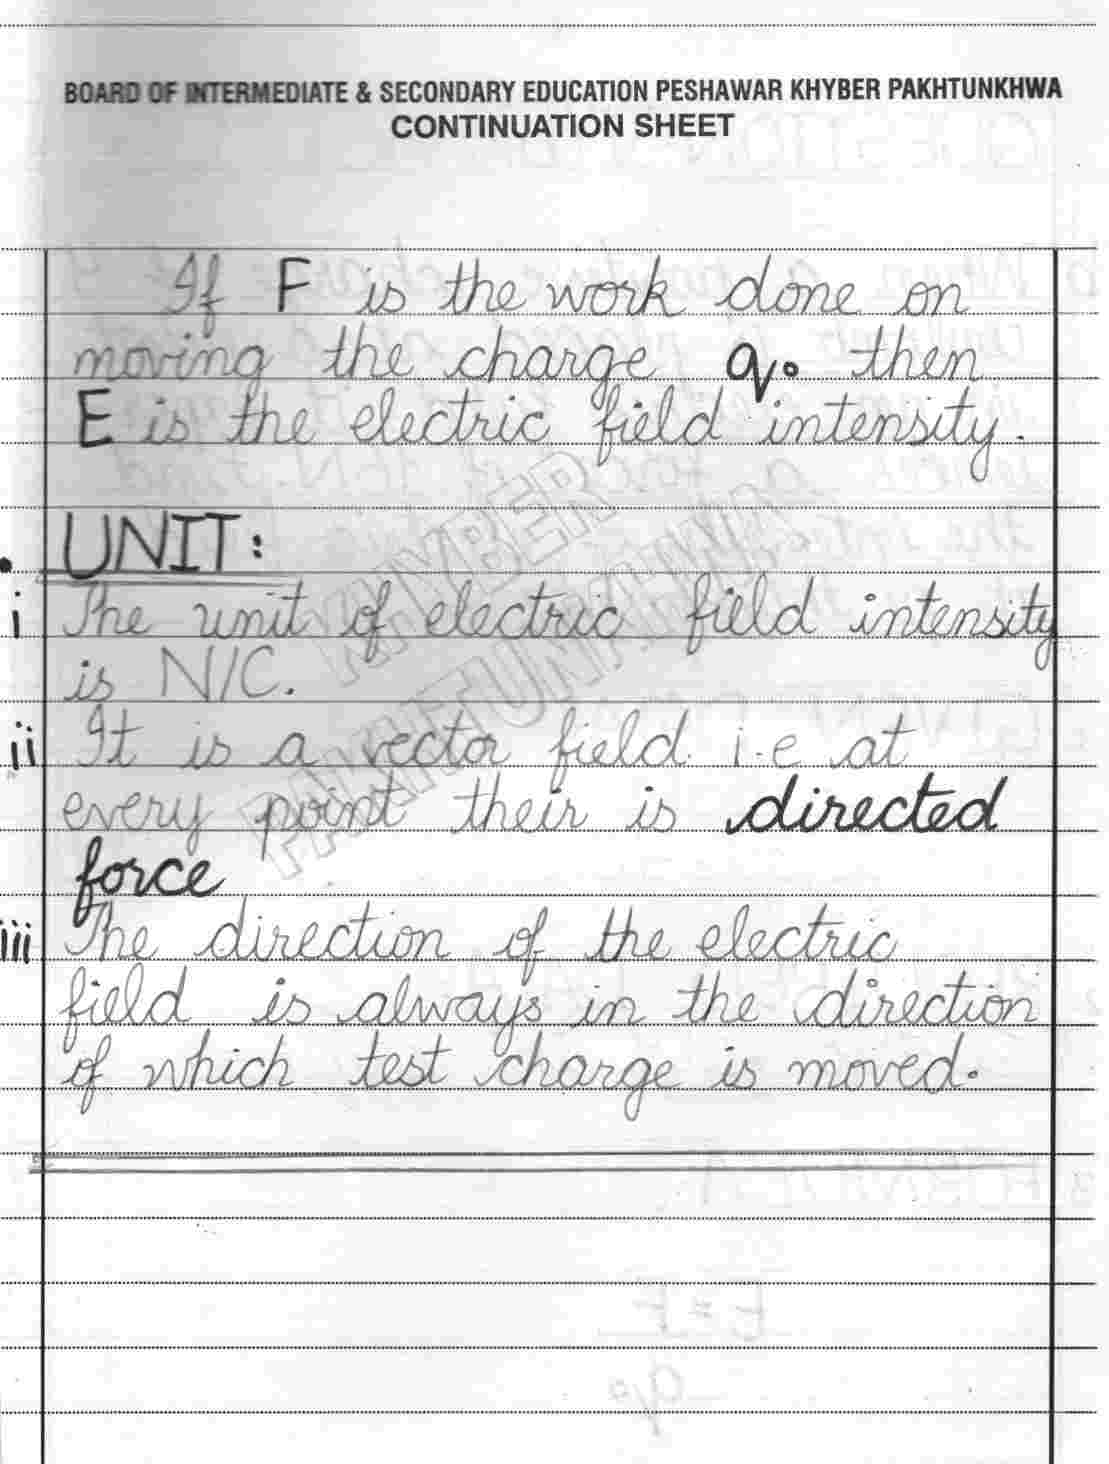 BOARD OF INTERMEDIATE & SECONDARY EDUCATION PESHAWAR KHYBER PAKHTUNKHWA
CONTINUATION SHEET
If F is the work done on
moving the charge q₀ then
E is the electric field intensity.
UNIT:
i The unit of electric field intensity
is N/C.
ii It is a vector field. i.e at
every point their is directed
force
iii The direction of the electric
field is always in the direction
of which test charge is moved.
KHYBER
PAKHTUNKHWA